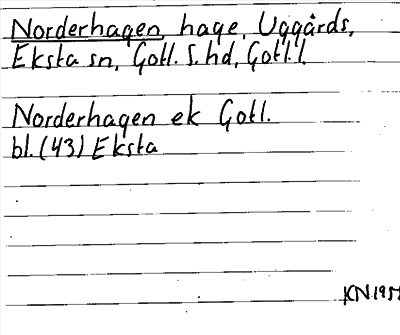 Norderhagen, hage, Uggårds,
Eksta sn, Gotl. S. hd, Gotl. l.
Norderhagen ek Gotl.
bl. (43) Eksta